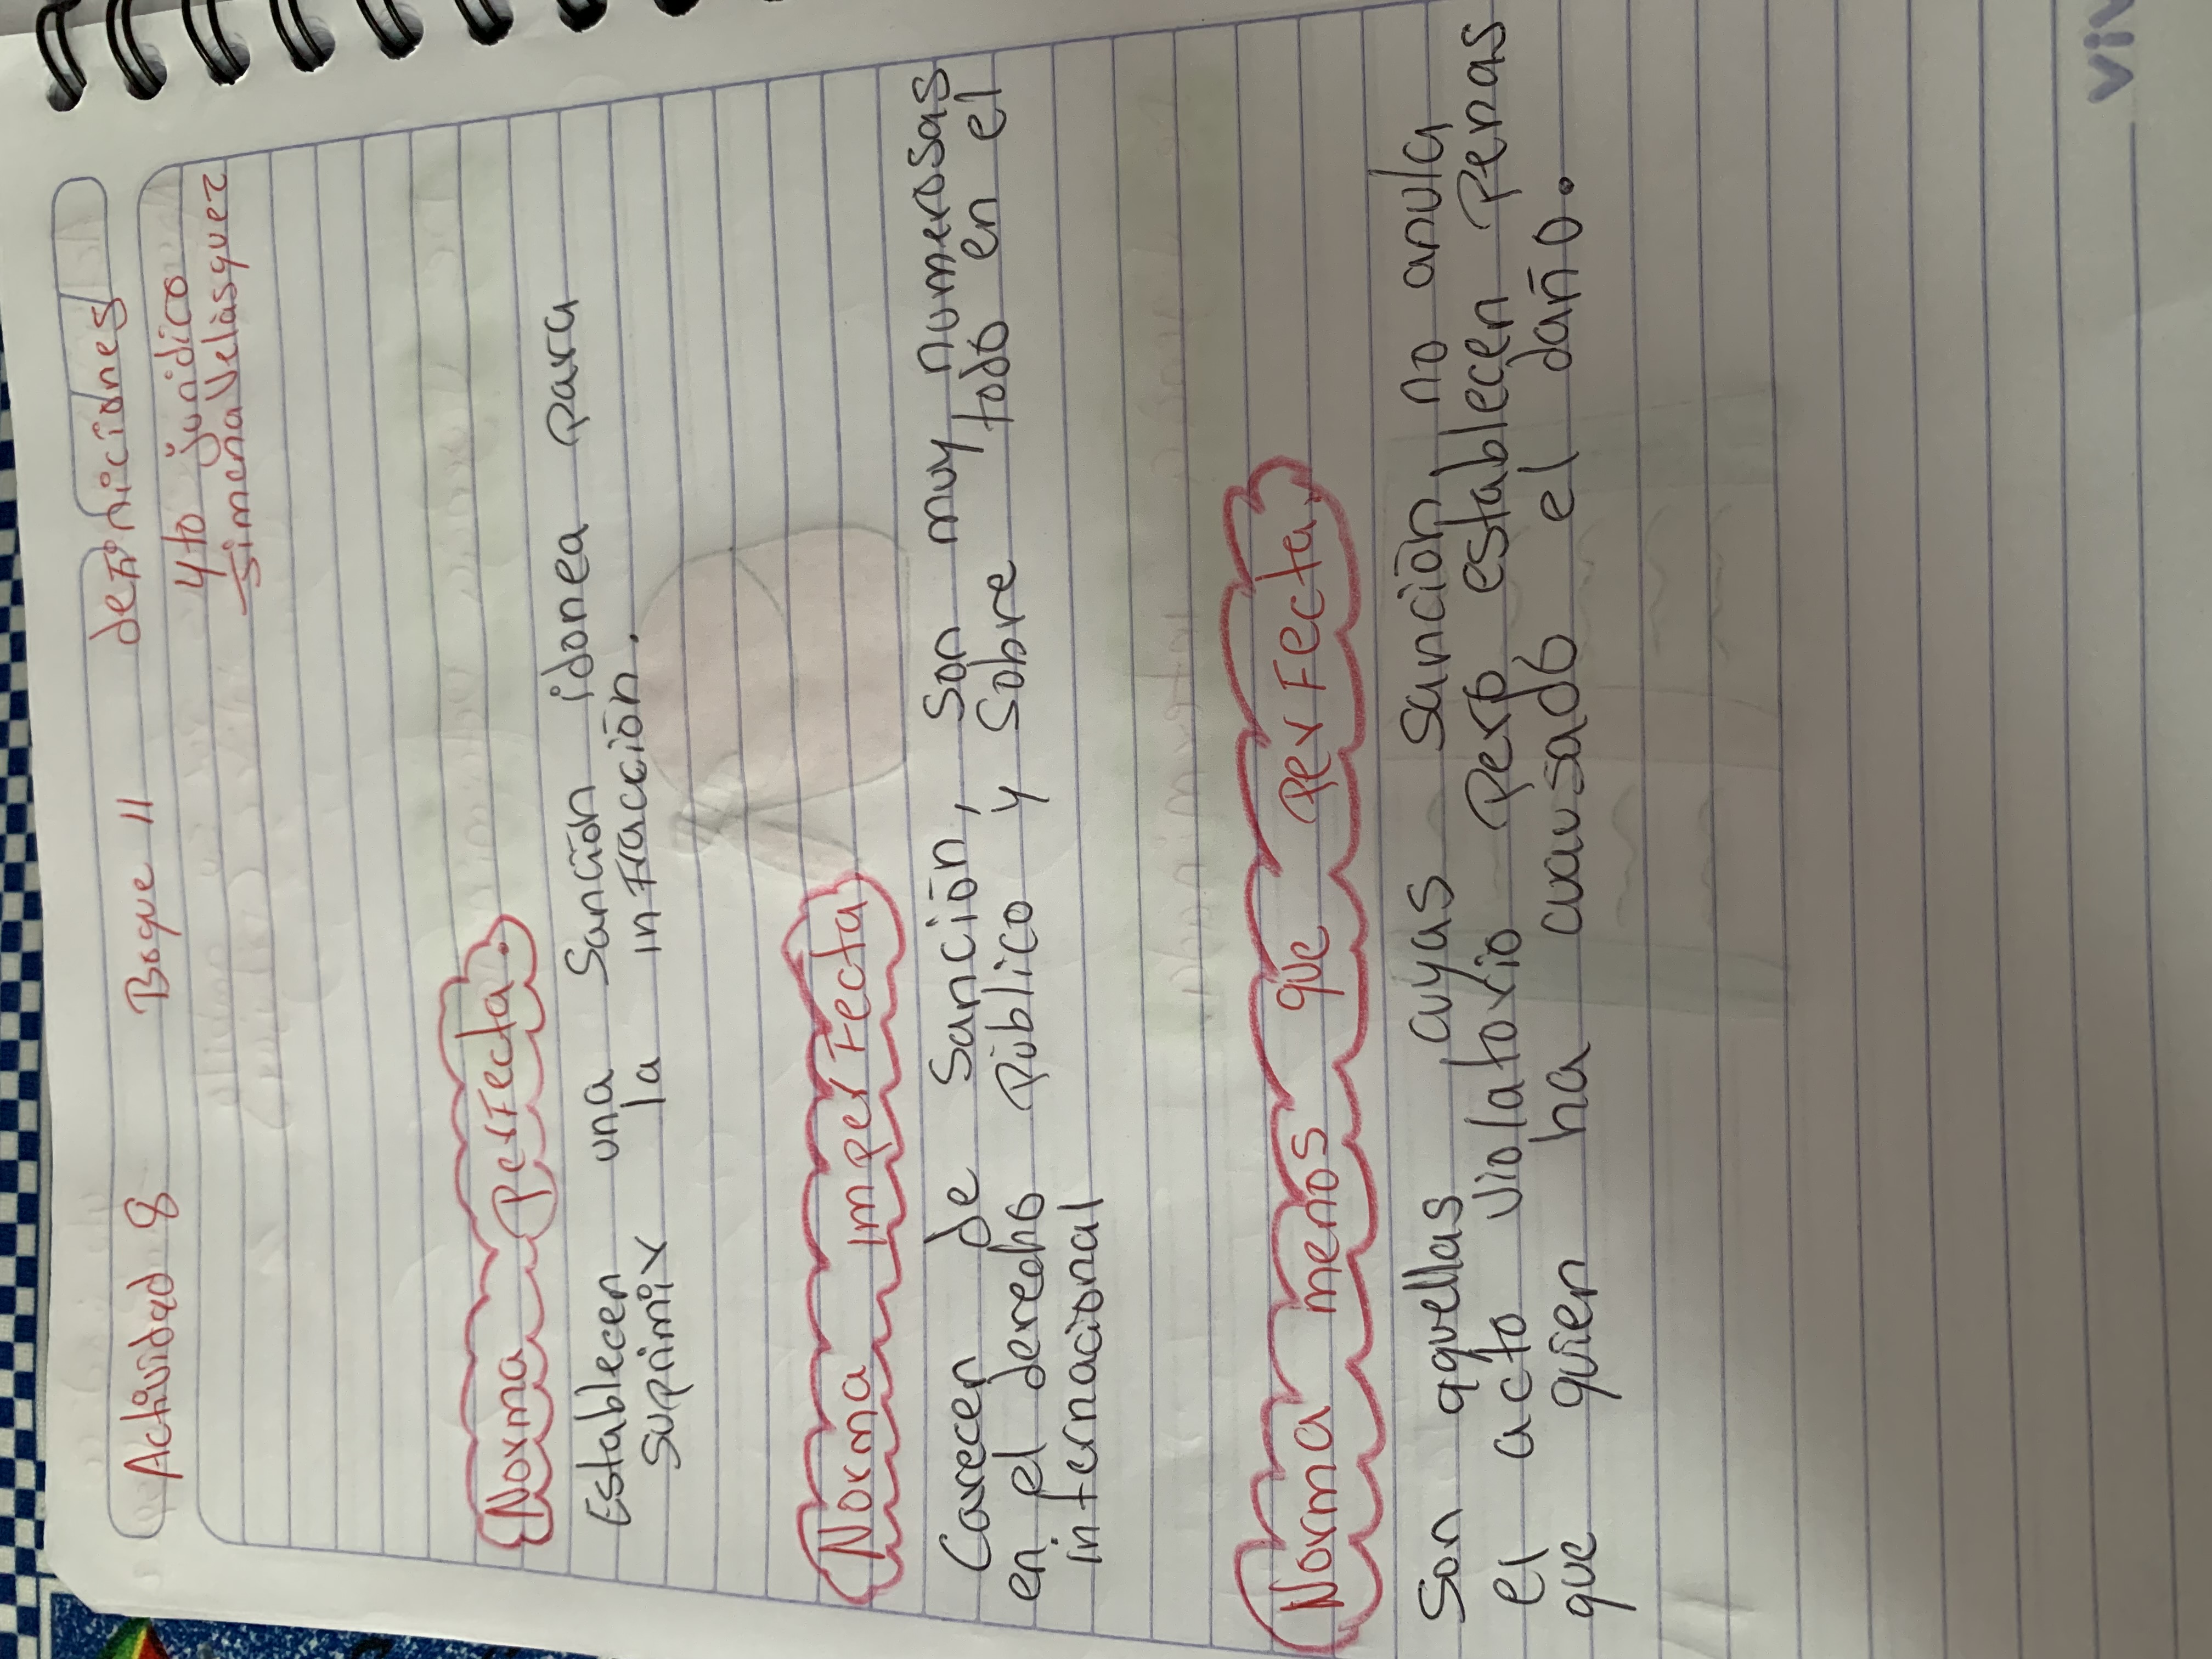 Actividad 8 Boque 11 definiciones
4to jurídico
simena Velásquez
Norma Perfecta.
Establecen una Sanción idonea para
suprimir la infracción.
Norma imperfecta
Carecen de Sanción, Son muy numerosas
en el derecho Público y Sobre todo en el
internacional
Norma menos que perfecta.
Son aquellas cuyas sanción no anula
el acto violatorio pero establecen Penas
que quien ha causado el daño.